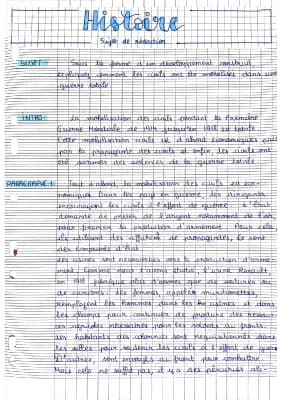 Histoire
Sujet de rédaction
SUJET : Sous la forme d'un développement construit,
expliquez comment les civils ont été mobilisés dans une
guerre totale
INTRO : La mobilisation des civils pendant la Première
Guerre Mondiale de 1914 jusqu'en 1918 est totale
Cette mobilisation civile est d'abord économique puis
par la propagande des civils et enfin les civils ont
été victimes des violences de la guerre totale
PARAGRAPHE 1 : Tout d'abord, la mobilisation des civils est éco-
nomique. Dans les pays en guerre, les dirigeants
encouragent les civils à l'effort de guerre : l'État
demande de prêter de l'argent notamment de l'or
pour financer la production d'armement. Pour cela
ils utilisent des affiches de propagandes, ce sont
des emprunts d'État
des usines sont reconverties vers la production d'arme-
ment. Comme nous l'avons étudié, l'usine Renault,
en 1918 fabrique plus d'armes que de voitures ou
de camions. des femmes, appelées munitionnettes,
remplacent les hommes dans les usines et dans
les champs pour continuer de produire des ressour-
ces agricoles nécessaires pour les soldats au fronts.
des habitants des colonies sont réquisitionnés dans
les villes pour soutenir les civils à l'effort de guerre
D'autres, sont envoyés au front pour combattre.
Mais cela ne suffit pas, il y a des pénuries ali-